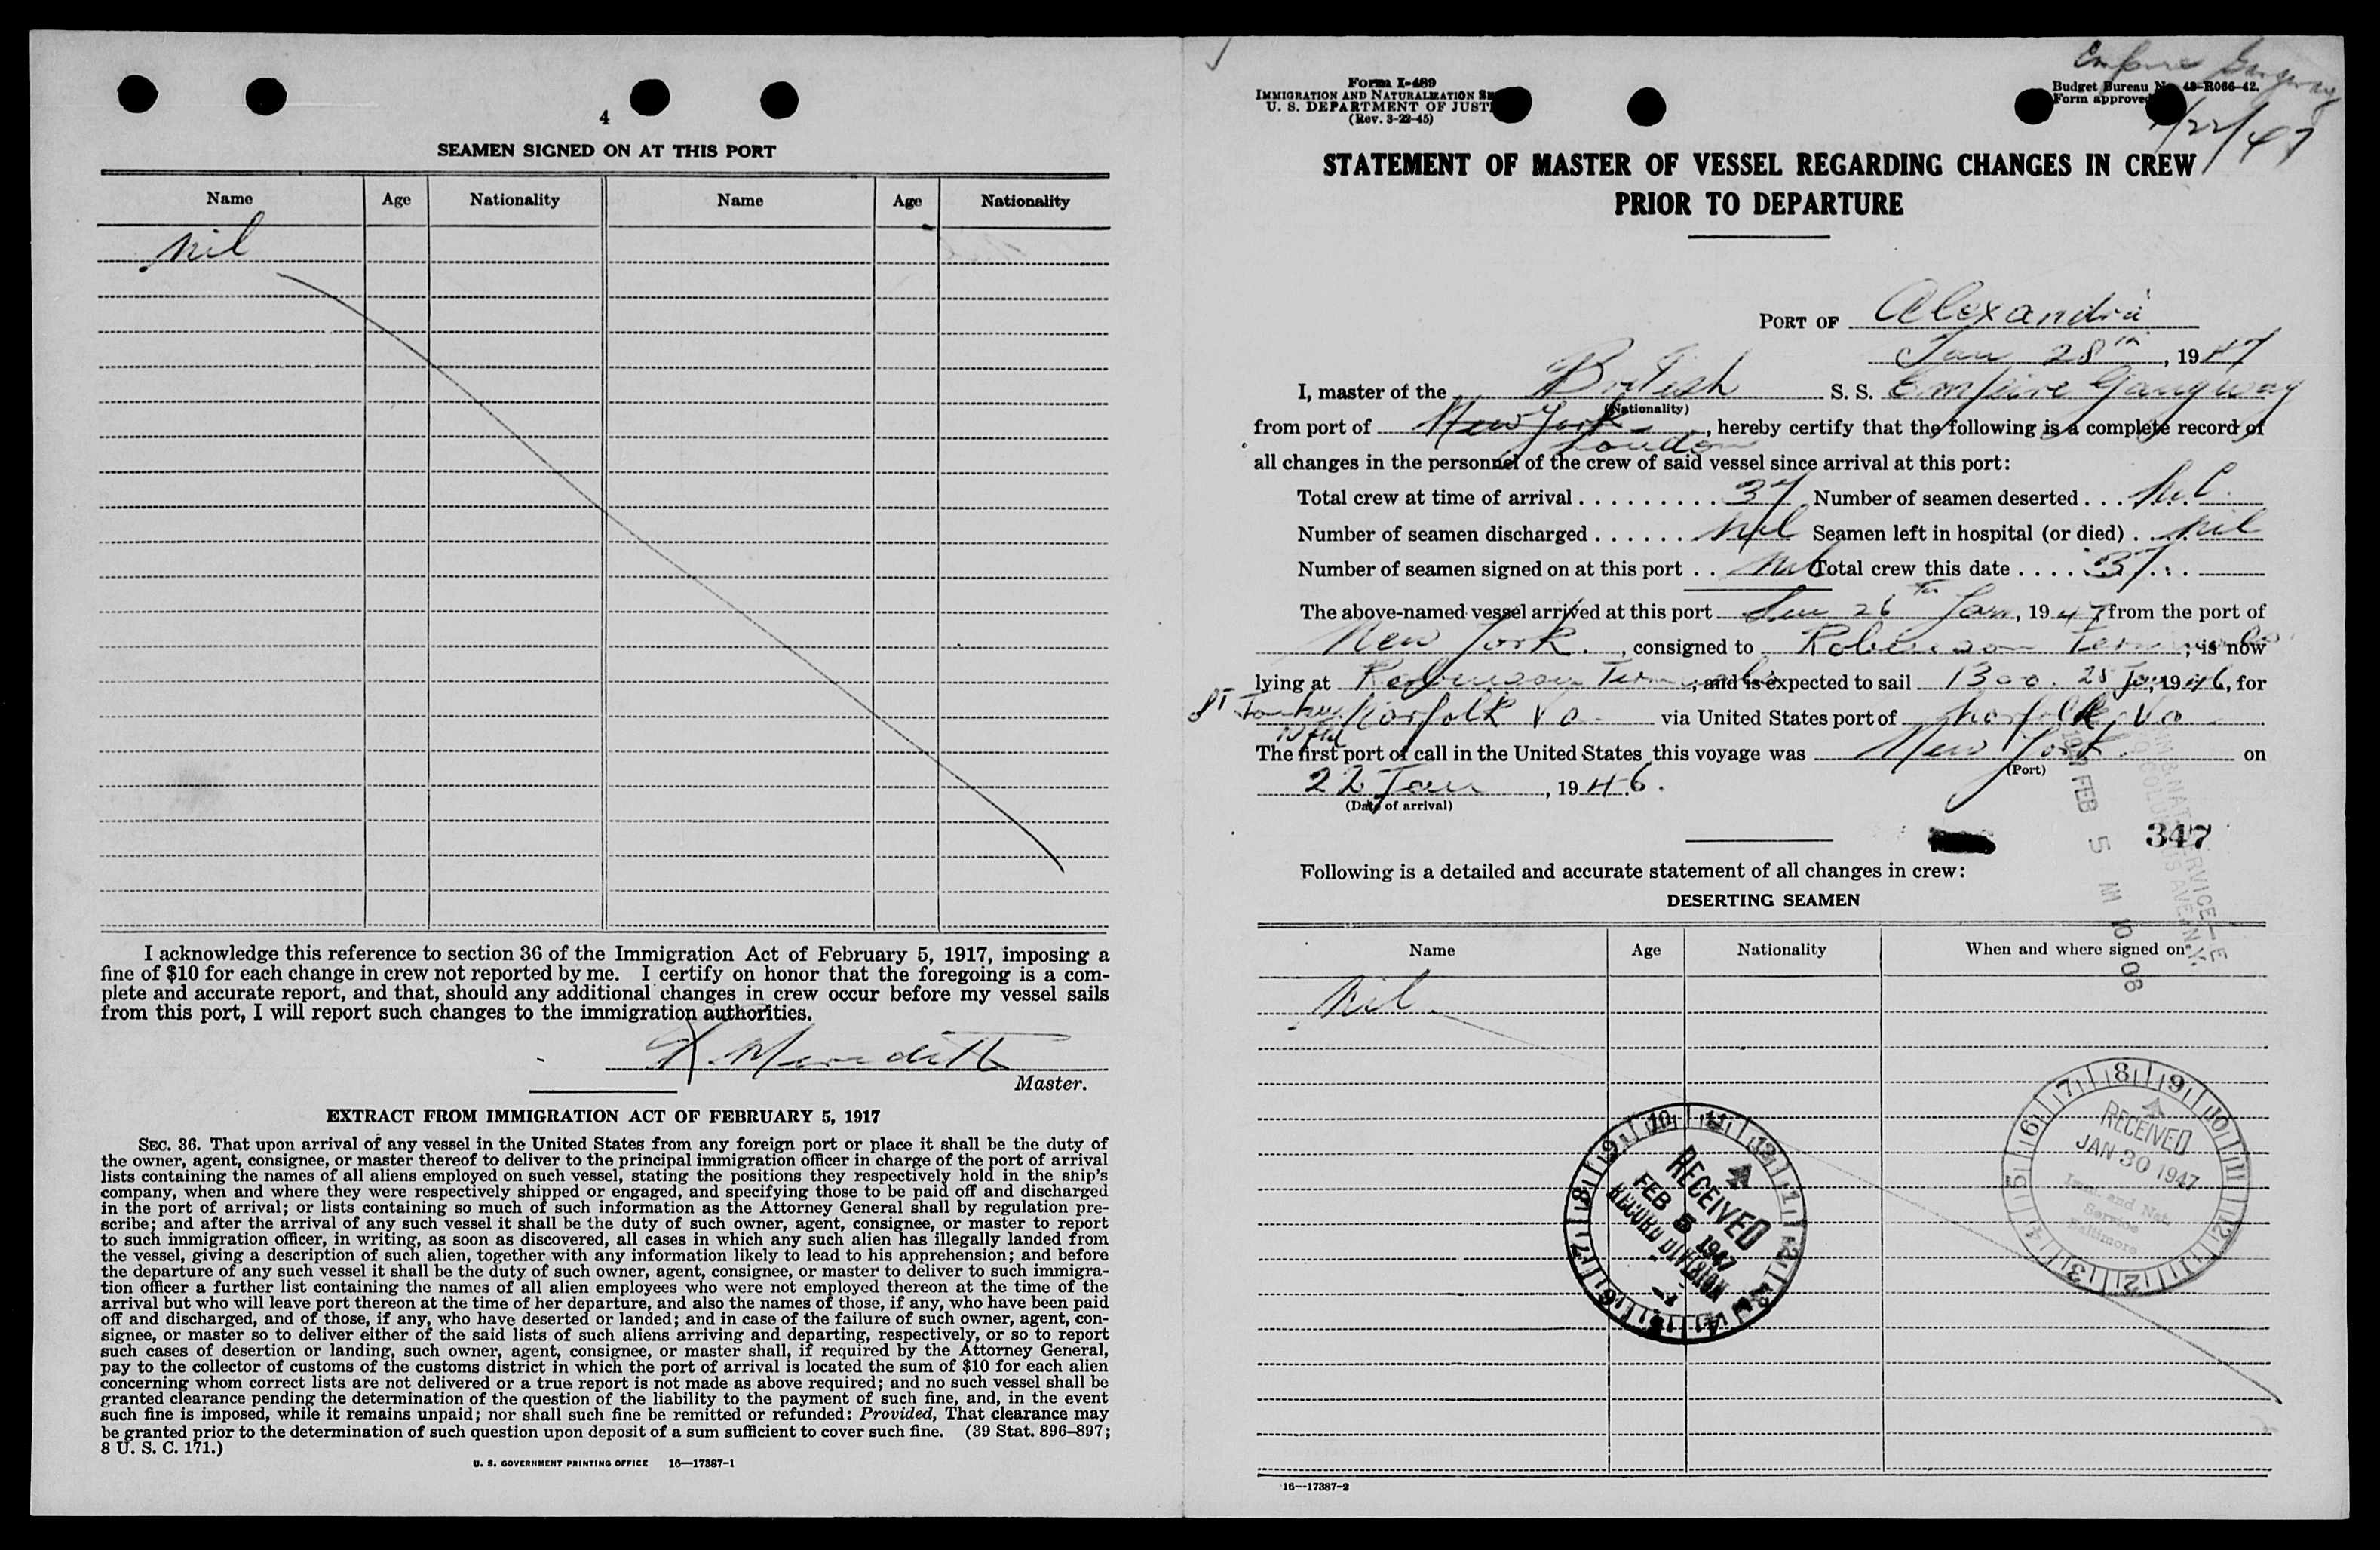 4
SEAMEN SIGNED ON AT THIS PORT
Name Age Nationality Name Age Nationality
Nil
I acknowledge this reference to section 36 of the Immigration Act of February 5, 1917, imposing a
fine of $10 for each change in crew not reported by me. I certify on honor that the foregoing is a com-
plete and accurate report, and that, should any additional changes in crew occur before my vessel sails
from this port, I will report such changes to the immigration authorities.
Meredith
Master.
EXTRACT FROM IMMIGRATION ACT OF FEBRUARY 5, 1917
SEC. 36. That upon arrival of any vessel in the United States from any foreign port or place it shall be the duty of
the owner, agent, consignee, or master thereof to deliver to the principal immigration officer in charge of the port of arrival
lists containing the names of all aliens employed on such vessel, stating the positions they respectively hold in the ship's
company, when and where they were respectively shipped or engaged, and specifying those to be paid off and discharged
in the port of arrival; or lists containing so much of such information as the Attorney General shall by regulation pre-
scribe; and after the arrival of any such vessel it shall be the duty of such owner, agent, consignee, or master to report
to such immigration officer, in writing, as soon as discovered, all cases in which any such alien has illegally landed from
the vessel, giving a description of such alien, together with any information likely to lead to his apprehension; and before
the departure of any such vessel it shall be the duty of such owner, agent, consignee, or master to deliver to such immigra-
tion officer a further list containing the names of all alien employees who were not employed thereon at the time of the
arrival but who will leave port thereon at the time of her departure, and also the names of those, if any, who have been paid
off and discharged, and of those, if any, who have deserted or landed; and in case of the failure of such owner, agent, con-
signee, or master so to deliver either of the said lists of such aliens arriving and departing, respectively, or so to report
such cases of desertion or landing, such owner, agent, consignee, or master shall, if required by the Attorney General,
pay to the collector of customs of the customs district in which the port of arrival is located the sum of $10 for each alien
concerning whom correct lists are not delivered or a true report is not made as above required; and no such vessel shall be
granted clearance pending the determination of the question of the liability to the payment of such fine, and, in the event
such fine is imposed, while it remains unpaid; nor shall such fine be remitted or refunded: Provided, That clearance may
be granted prior to the determination of such question upon deposit of a sum sufficient to cover such fine. (39 Stat. 896–897;
8 U. S. C. 171.)
U. S. GOVERNMENT PRINTING OFFICE 16—17387-1
Empire Gangway
1/22/47
Form I-489
IMMIGRATION AND NATURALIZATION
U. S. DEPARTMENT OF JUST
(Rev. 3-22-45)
Budget Bureau No. 43-R066-42.
Form approved
STATEMENT OF MASTER OF VESSEL REGARDING CHANGES IN CREW
PRIOR TO DEPARTURE
PORT OF Alexandria
Jan 28th, 1947
I, master of the British S. S. Empire Gangway
(Nationality)
from port of New York, hereby certify that the following is a complete record of
London
all changes in the personnel of the crew of said vessel since arrival at this port:
Total crew at time of arrival 37 Number of seamen deserted Nil
Number of seamen discharged Nil Seamen left in hospital (or died) Nil
Number of seamen signed on at this port Nil Total crew this date 37
The above-named vessel arrived at this port Sun 26th Jan, 1947 from the port of
New York, consigned to Robinson Terminals, is now
lying at Robinson Terminals, and is expected to sail 1300 28 Jan, 1946, for
Norfolk Va via United States port of Norfolk, Va
The first port of call in the United States this voyage was New York on
(Port)
22 Jan, 1946.
(Date of arrival)
347
1947 FEB 5 AM 10 08
Following is a detailed and accurate statement of all changes in crew:
DESERTING SEAMEN
Name Age Nationality When and where signed on
Nil
RECEIVED
FEB 5 1947
RECORD DIVISION
RECEIVED
JAN 30 1947
Imm. and Nat.
Service
Baltimore
16—17387-2